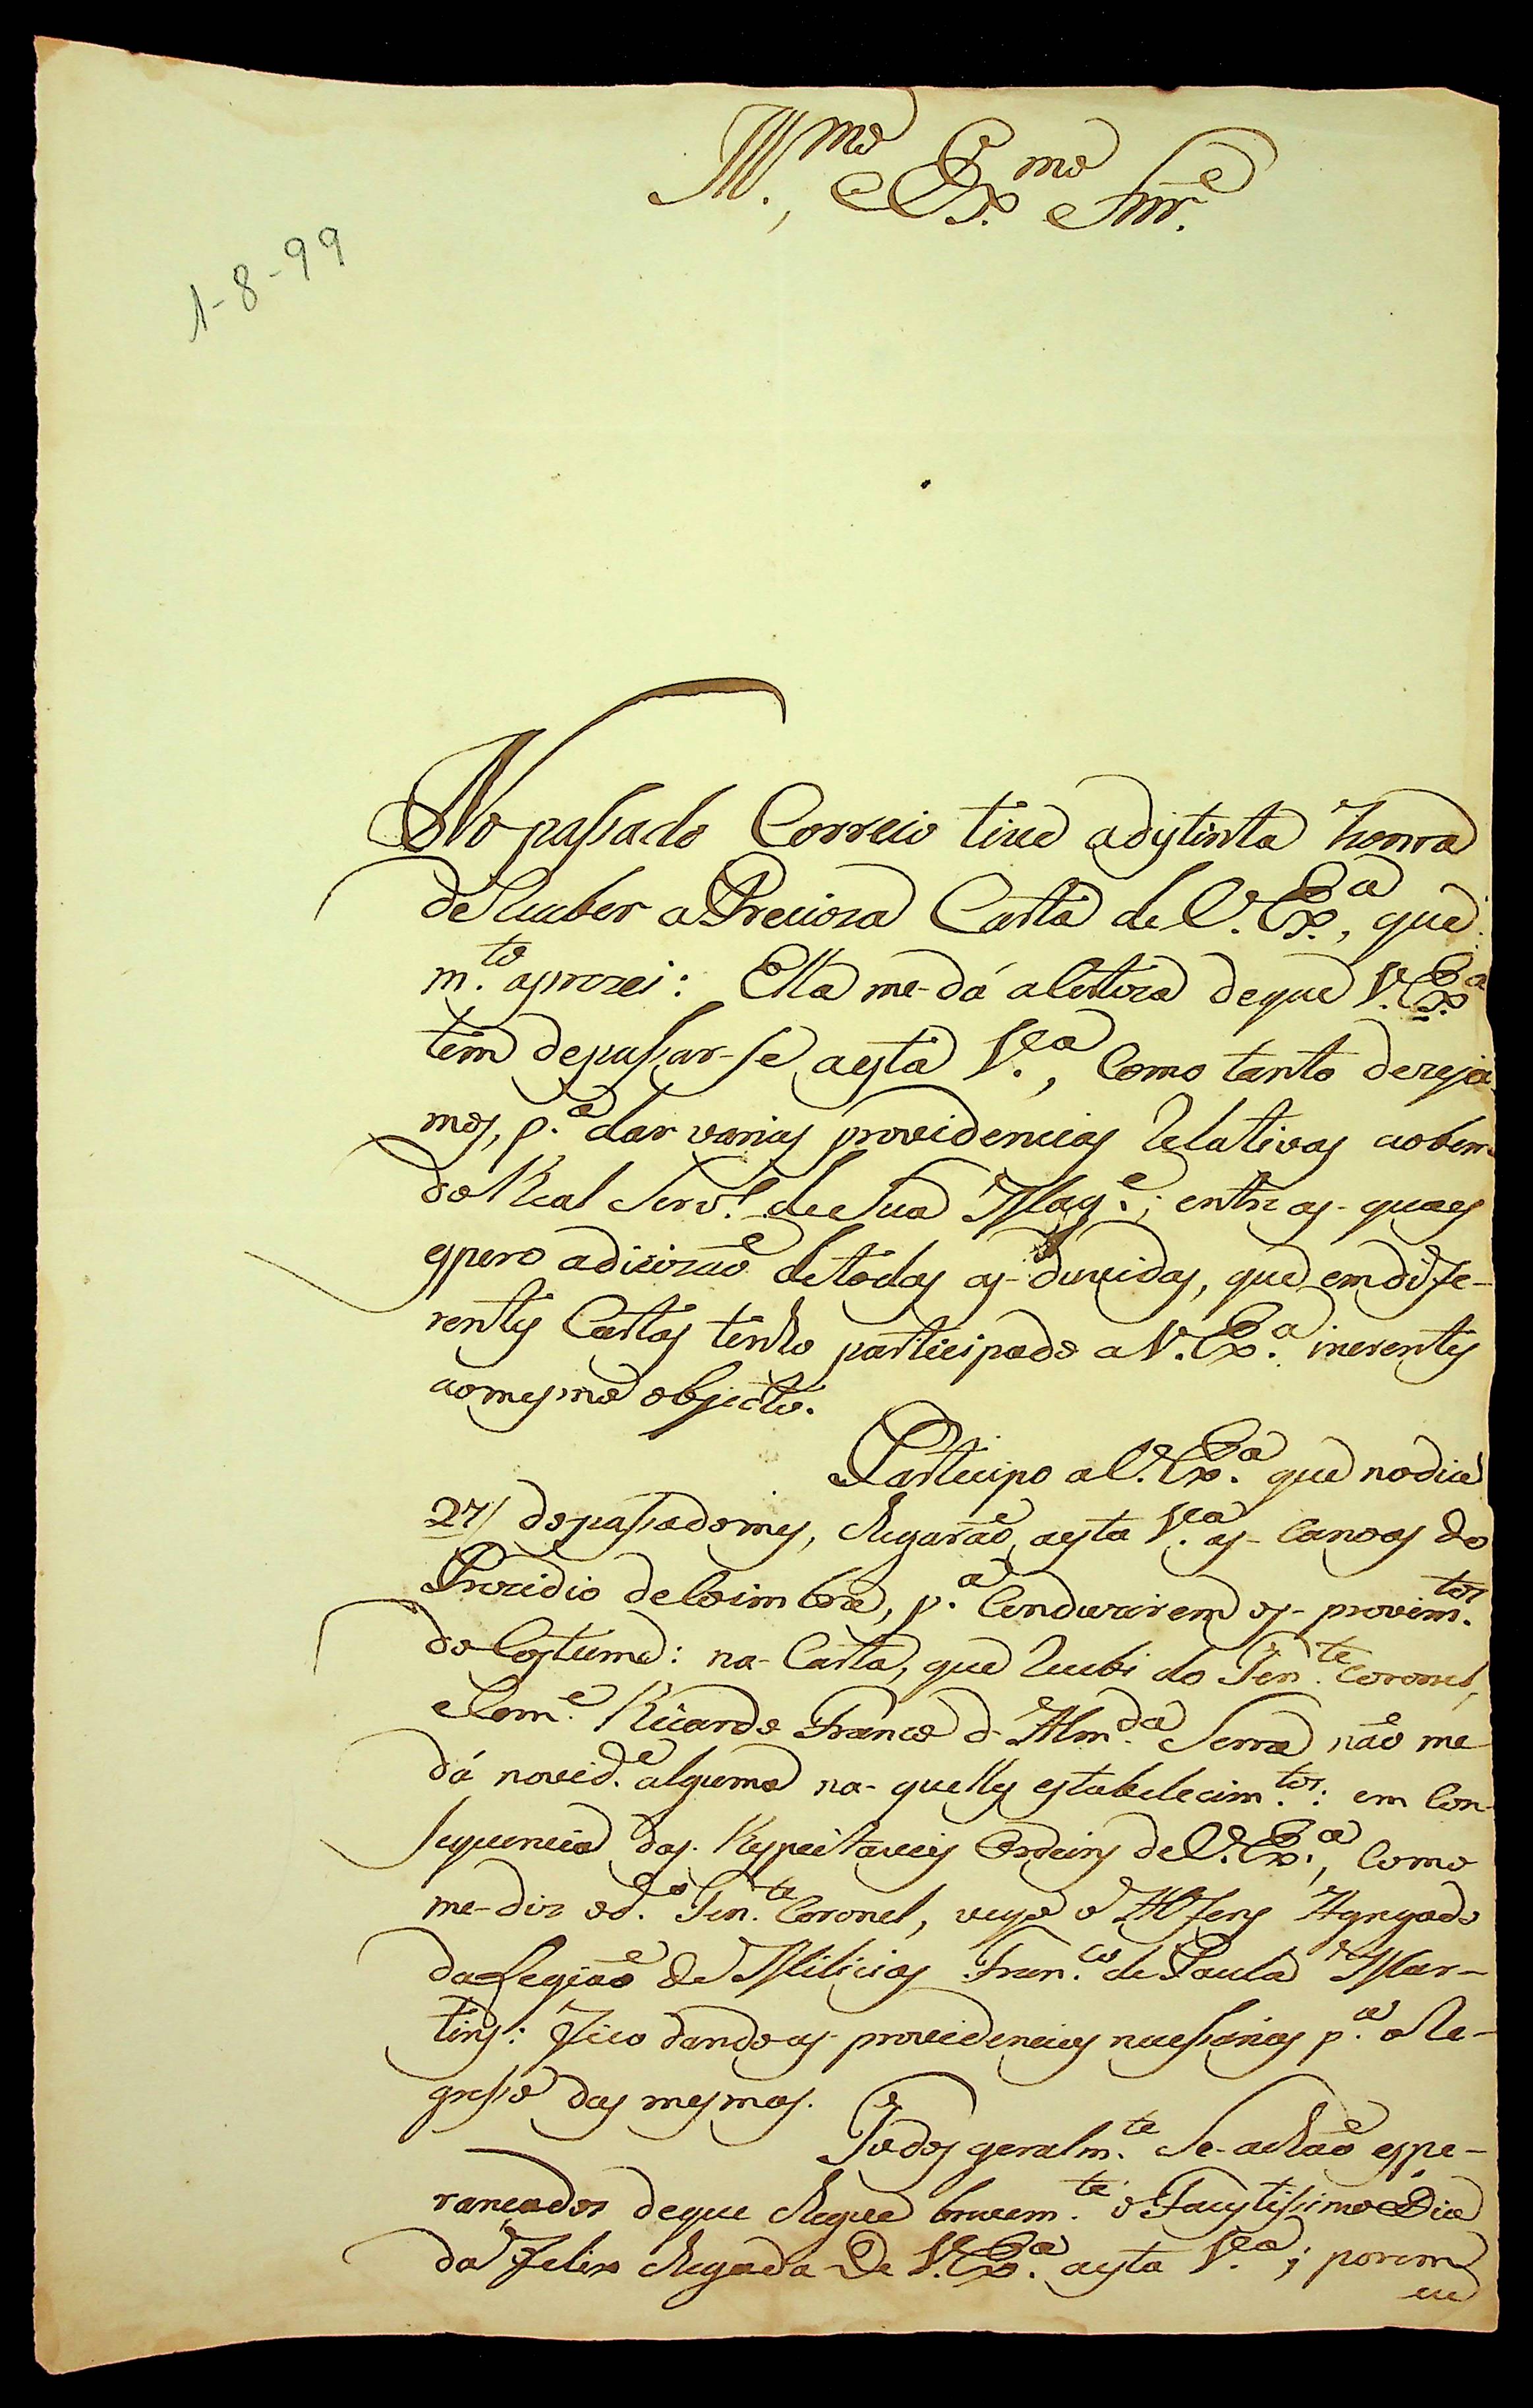 Ill.mo, e Ex.mo Snr.e
1-8-99
No passado Correio tive adistinta honra
deReceber aPrecioza Carta de V. Ex.a, que
m.to aprezei: Ella me-dá aCerteza deque V. Ex.a
tem depassar-se aesta V.a, Como tanto dezeja-
mos, p.a dar varias providencias Relativas aobem
do Real Serv.o de Sua Mag.e; entre as-quaes
espero adicizaõ detodas as-duvidas, que emdife-
rentes Cartas tenho participado aV. Ex.a inerentes
aomesmo objecto.
Participo aV. Ex.a que nodia
27/ dopassadomes, chegaraõ aesta V.a as-Canoas do
Prezidio deCoimbra, p.a Conduzirem os-provim.tos
do Costume: na-Carta, que Recebi do Ten.te Coronel,
eCom.e Ricardo Franco d'Alm.da Serra naõ me
dá novid.e alguma na-quelles estabelecim.tos: em Con-
sequencia das-Respeitaveis Ordeins deV. Ex.a, Como
me-diz od.o Ten.te Coronel, veyo o Alferes Agregado
daLegiaõ de Milicias Fran.co de Paula Mar-
tins: Fico dando as-providencias necessarias p.a oRe-
gresso das mesmas.
Todos geralm.te Se-achaõ espe-
rançados deque chegue brevem.te o Faustissimo Dia
da Feliz chegada De V. Ex.a aesta V.a; porem
eu